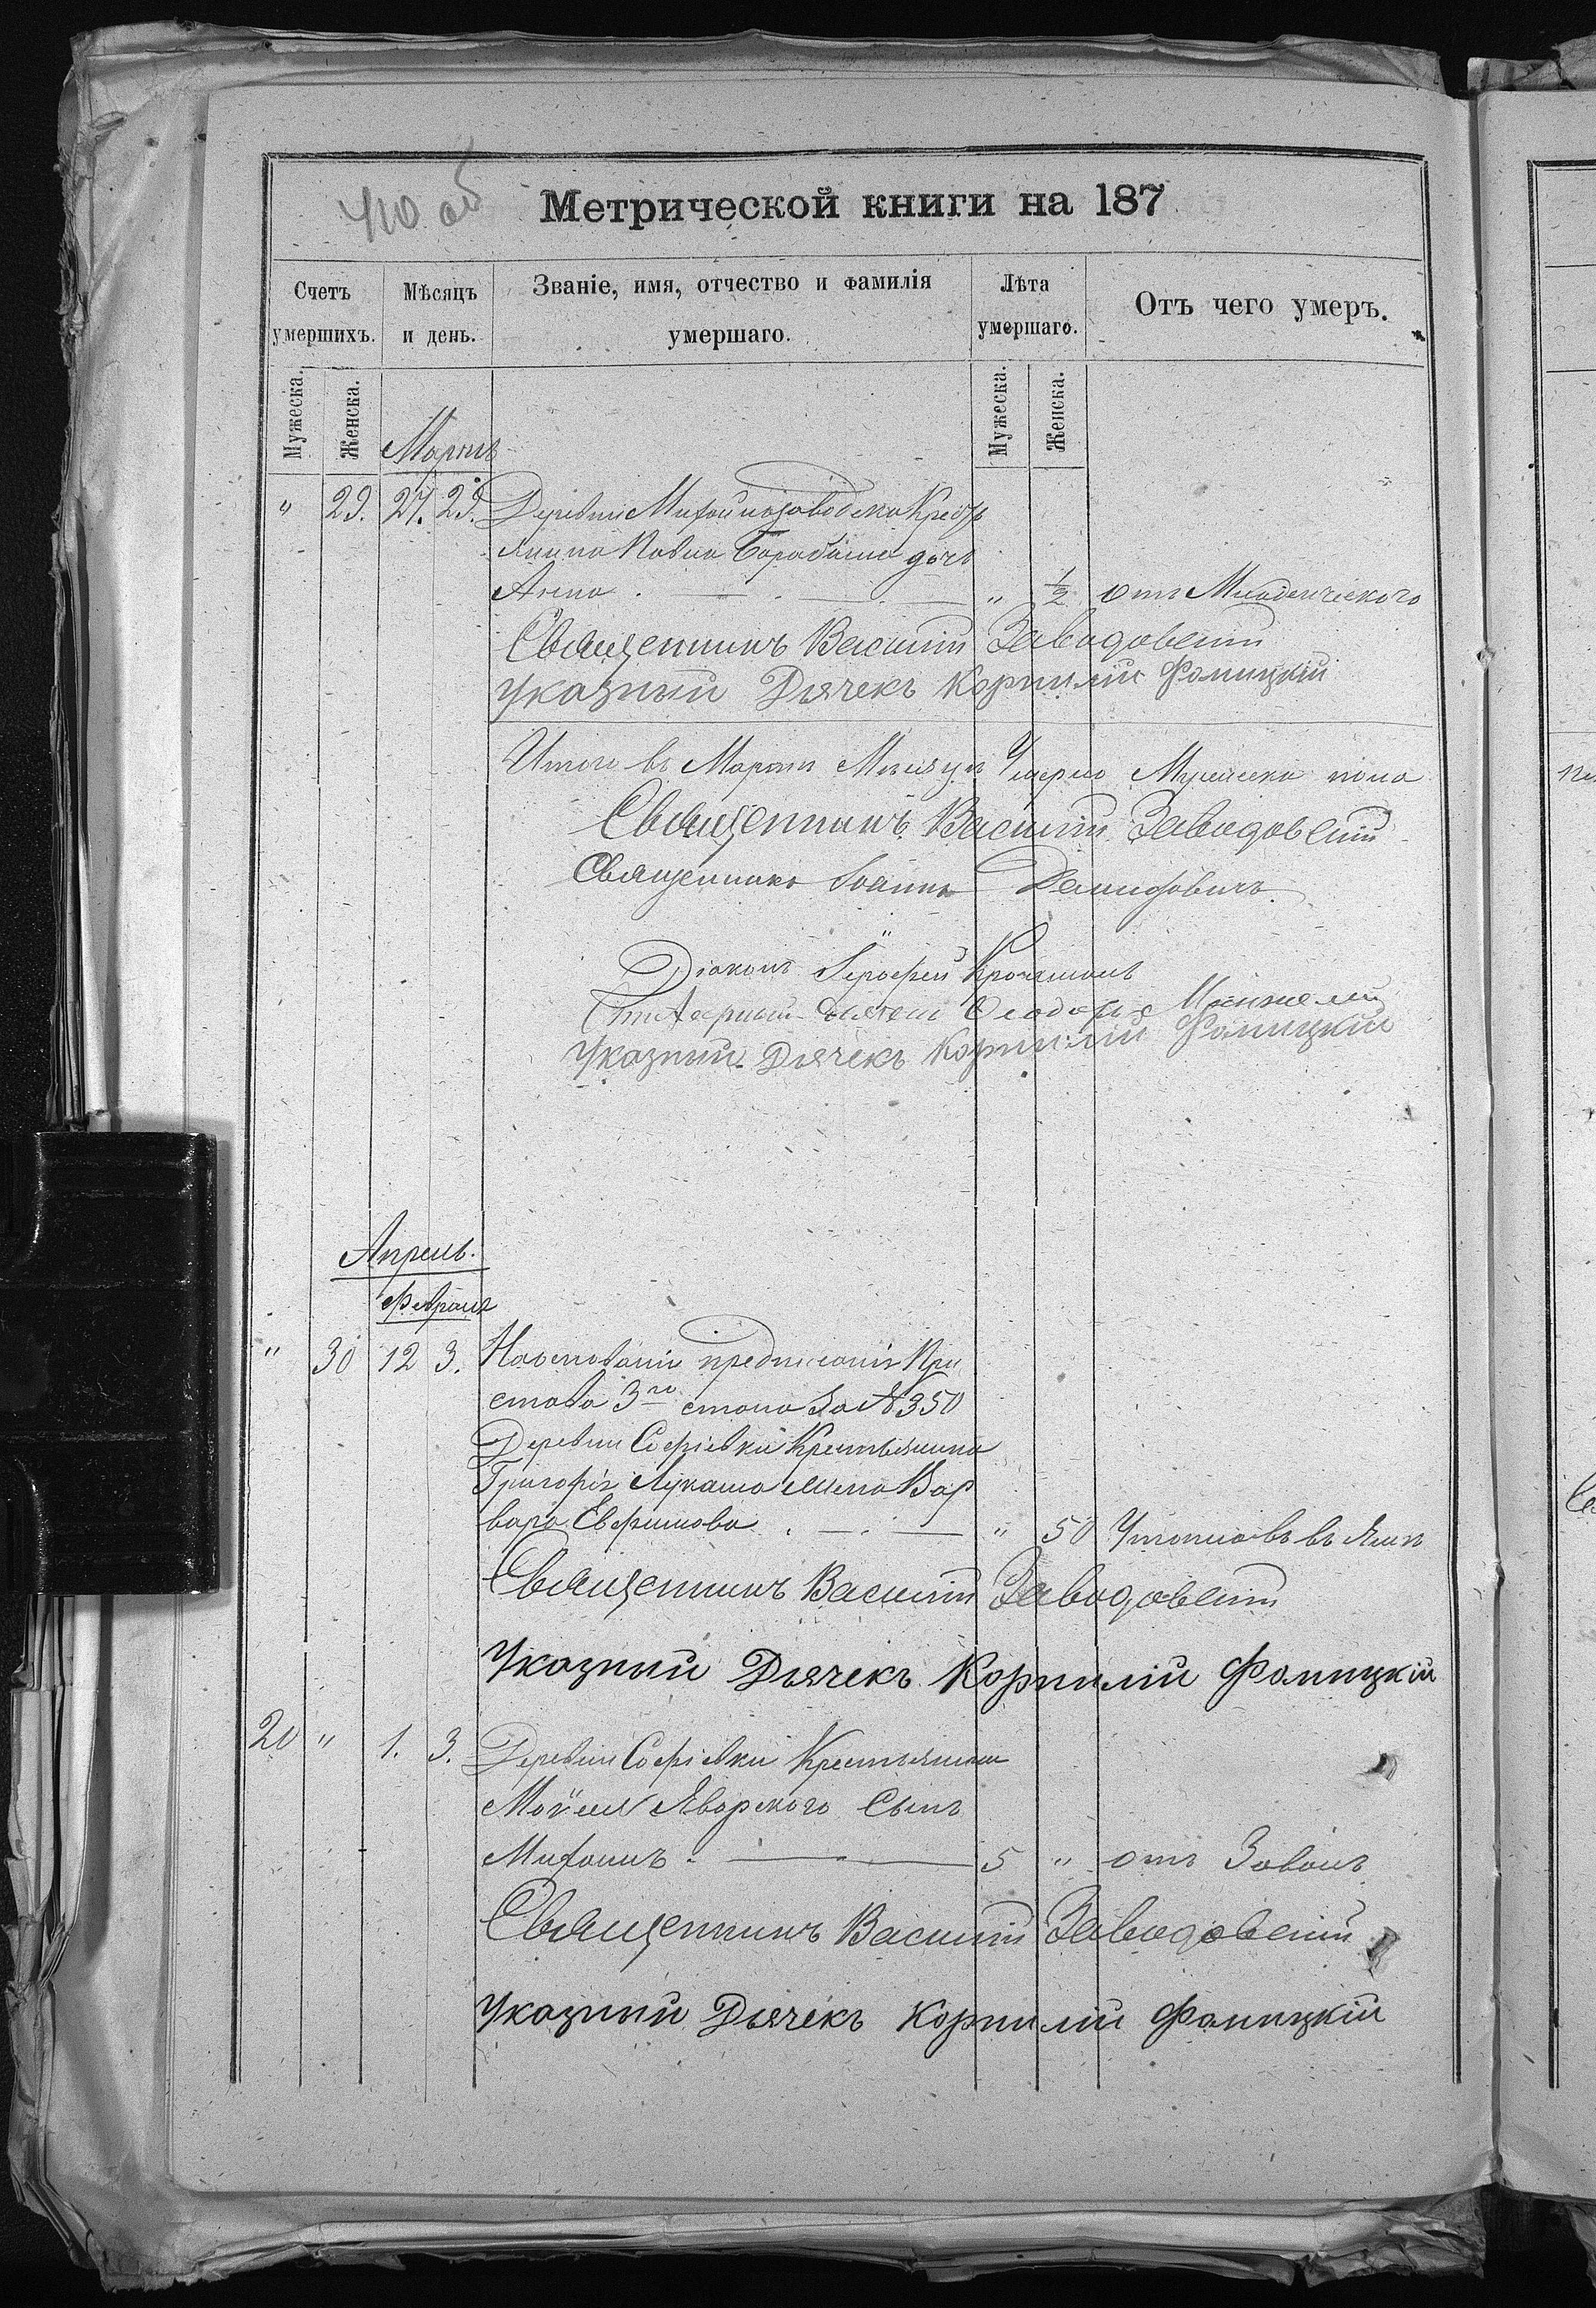 410 об
Метрической книги на 187
Счетъ умершихъ.
Мѣсяцъ и день.
Званіе, имя, отчество и фамилія умершаго.
Лѣта умершаго.
Отъ чего умеръ.
Мужеска. Женска. Мартъ Мужеска. Женска.
" 29. 27. 29. Деревни Крестья
нина Павла дочь
Анна " 1/2 отъ Младенческаго
Священникъ Василій Заводовскій
Указный Дьячекъ Корнилій Фаницкій
Итого въ Мартѣ Мѣсяцѣ Умерло Мужеска пола
Священникъ Василій Заводовскій
Священникъ Іоаннъ
Діаконъ Іерофей
Дьячекъ Ѳеодоръ
Указный Дьячекъ Корнилій Фаницкій
Апрель.
Февраля
" 30 12 3. На основаніи предписанія При
става 3го стана за № 350
Деревни Софіевки Крестьянина
Григорія Лукаша жена Вар
вара Ефимова " 50 въ
Священникъ Василій Заводовскій
Указный Дьячекъ Корнилій Фаницкій
20 " 1. 3. Деревни Софіевки Крестьянина
Моисея Яворскаго Сынъ
Михаилъ 5 " отъ
Священникъ Василій Заводовскій
Указный Дьячекъ Корнилій Фаницкій